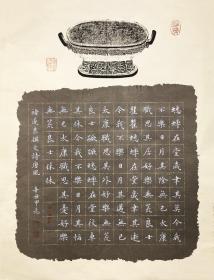 蟋蟀在堂歲聿其莫今我
不樂日月其除無已大康
職思其居好樂無荒良士
瞿瞿蟋蟀在堂歲聿其逝
今我不樂日月其邁無已
大康職思其外好樂無荒
良士蹶蹶蟋蟀在堂役車
其休今我不樂日月其慆
無已大康職思其憂好樂
無荒良士休休
詩唐風